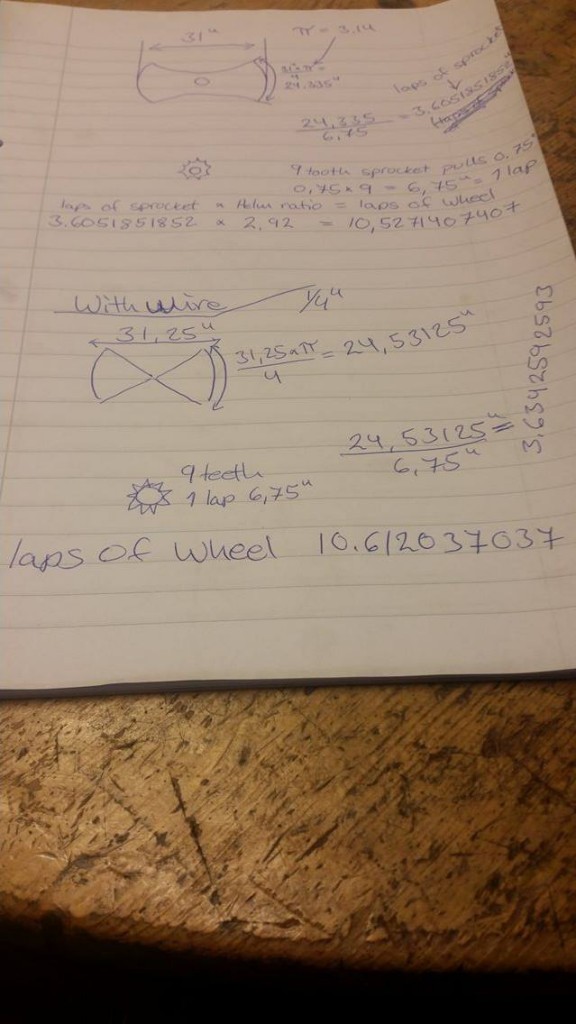 31" π = 3,14
31" × π =
24,335"
24,335
6,75
= 3,6051851852"
laps of sprocket
9 tooth sprocket pulls 0,75"
0,75 × 9 = 6,75" = 1 lap
laps of sprocket × ratio = laps of wheel
3.6051851852 × 2,92 = 10,5271407407
With wire 1/4"
31,25"
31,25 × π
4
= 24,53125"
24,53125" =
6,75"
3,6342592593
9 teeth
1 lap 6,75"
laps of wheel 10.612037037